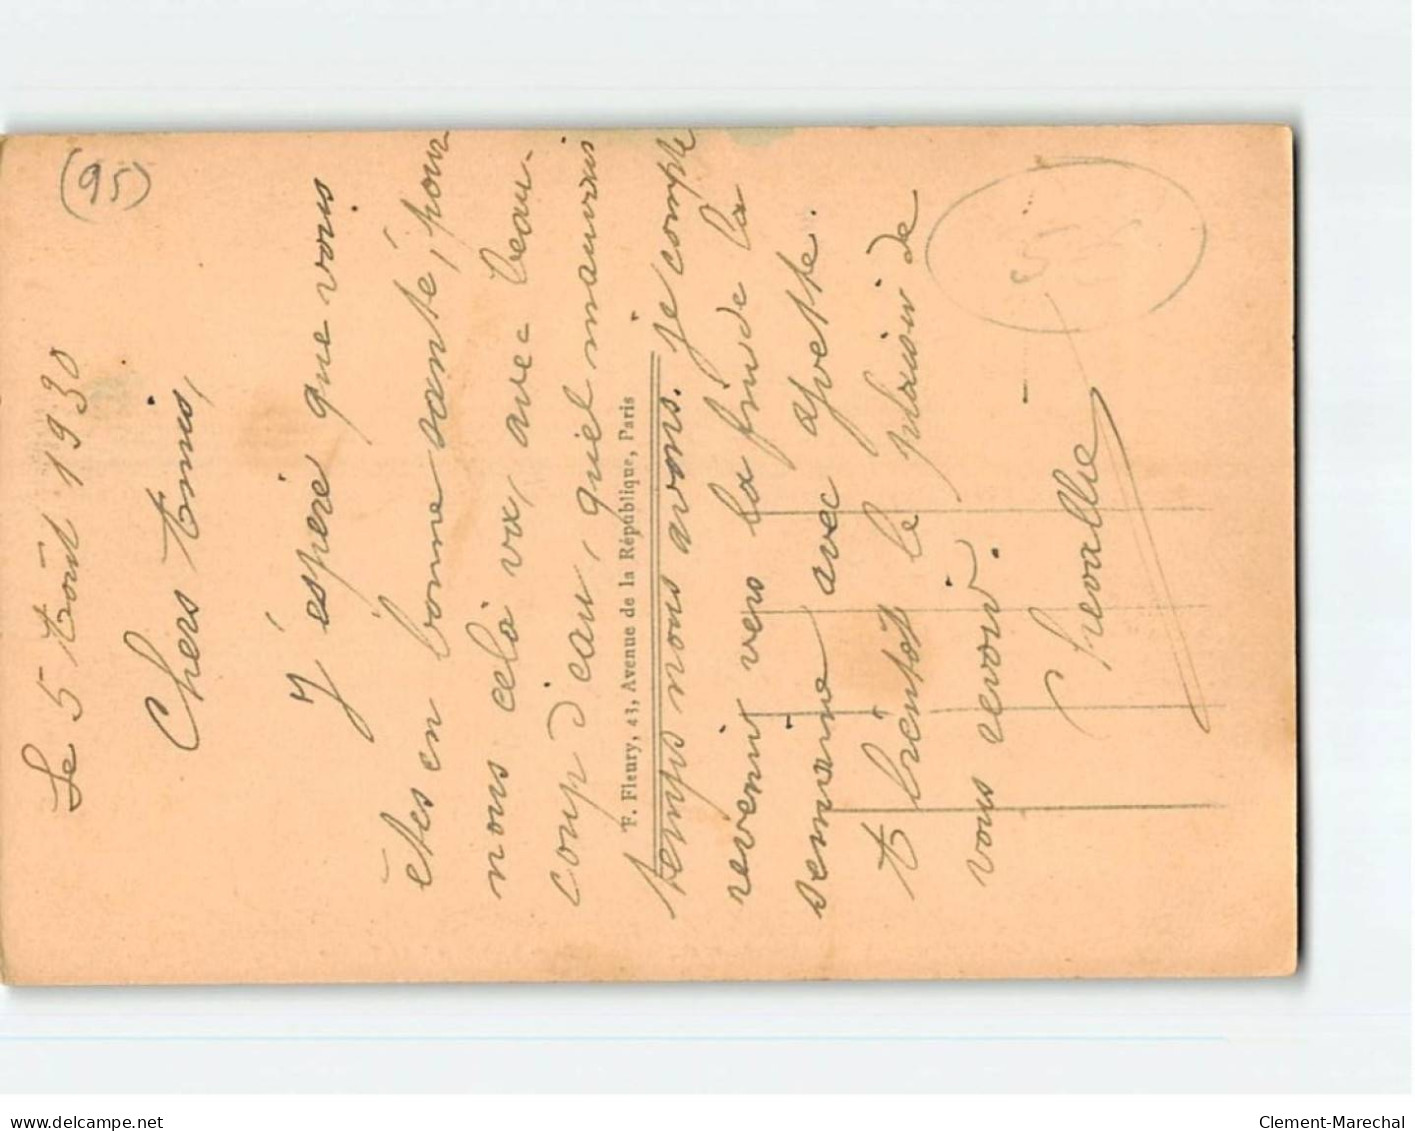 (95)
Le 5 Août 1930
Chers Amis,
J'éspère que vous
êtes en bonne santé, pour
nous celà va, avec beau-
coup d'eau, quel mauvais
F. Fleury, 43, Avenue de la République, Paris
temps nous avons. Je compte
revenir vers la fin de la
semaine avec Yvette.
A bientôt le plaisir de
vous revoir.
Chevallie
delcampe.net
Clement-Marechal